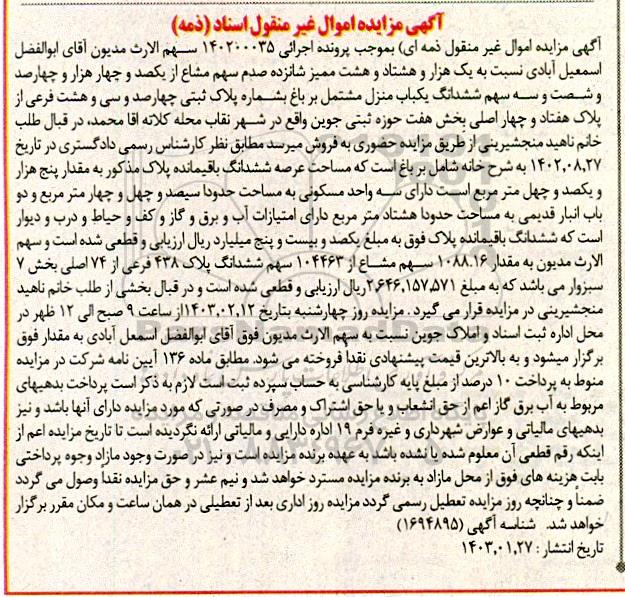 آگهی مزایده اموال غیر منقول اسناد (ذمه)
آگهی مزایده اموال غیر منقول ذمه ای) بموجب پرونده اجرائی ۱۴۰۲۰۰۰۳۵ سهم الارث مدیون آقای ابوالفضل
اسمعیل آبادی نسبت به یک هزار و هشتاد و هشت ممیز شانزده صدم سهم مشاع از یکصد و چهار هزار و چهارصد
و شصت و سه سهم ششدانگ یکباب منزل مشتمل بر باغ بشماره پلاک ثبتی چهارصد و سی و هشت فرعی از
پلاک هفتاد و چهار اصلی بخش هفت حوزه ثبتی جوین واقع در شهر نقاب محله کلاته اقا محمد، در قبال طلب
خانم ناهید منجشیرینی از طریق مزایده حضوری به فروش میرسد مطابق نظر کارشناس رسمی دادگستری در تاریخ
۱۴۰۲,۰۸,۲۷ به شرح خانه شامل بر باغ است که مساحت عرصه ششدانگ باقیمانده پلاک مذکور به مقدار پنج هزار
و یکصد و چهل متر مربع است دارای سه واحد مسکونی به مساحت حدودا سیصد و چهل و چهار متر مربع و دو
باب انبار قدیمی به مساحت حدودا هشتاد متر مربع دارای امتیازات آب و برق و گاز و کف و حیاط و درب و دیوار
است که ششدانگ باقیمانده پلاک فوق به مبلغ یکصد و بیست و پنج میلیارد ریال ارزیابی و قطعی شده است و سهم
الارث مدیون به مقدار ۱۰۸۸.۱۶ سهم مشاع از ۱۰۴۴۶۳ سهم ششدانگ پلاک ۴۳۸ فرعی از ۷۴ اصلی بخش ۷
سبزوار می باشد که به مبلغ ۲,۶۴۶,۱۵۷,۵۷۱ریال ارزیابی و قطعی شده است و در قبال بخشی از طلب خانم ناهید
منجشیرینی در مزایده قرار می گیرد . مزایده روز چهارشنبه بتاریخ ۱۴۰۳,۰۲,۱۲از ساعت ۹ صبح الی ۱۲ ظهر در
محل اداره ثبت اسناد و املاک جوین نسبت به سهم الارث مدیون فوق آقای ابوالفضل اسمعل آبادی به مقدار فوق
برگزار میشود و به بالاترین قیمت پیشنهادی نقدا فروخته می شود. مطابق ماده ۱۳۶ آیین نامه شرکت در مزایده
منوط به پرداخت ۱۰ درصد از مبلغ پایه کارشناسی به حساب سپرده ثبت است لازم به ذکر است پرداخت بدهیهای
مربوط به آب برق گاز اعم از حق انشعاب و یا حق اشتراک و مصرف در صورتی که مورد مزایده دارای آنها باشد و نیز
بدهیهای مالیاتی و عوارض شهرداری و غیره فرم ۱۹ اداره دارایی و مالیاتی ارائه نگردیده است تا تاریخ مزایده اعم از
اینکه رقم قطعی آن معلوم شده یا نشده باشد به عهده برنده مزایده است و نیز در صورت وجود مازاد وجوه پرداختی
بابت هزینه های فوق از محل مازاد به برنده مزایده مسترد خواهد شد و نیم عشر و حق مزایده نقداً وصول می گردد
ضمناً و چنانچه روز مزایده تعطیل رسمی گردد مزایده روز اداری بعد از تعطیلی در همان ساعت و مکان مقرر برگزار
خواهد شد. شناسه آگهی (۱۶۹۴۸۹۵)
تاریخ انتشار : ۱۴۰۳,۰۱,۲۷